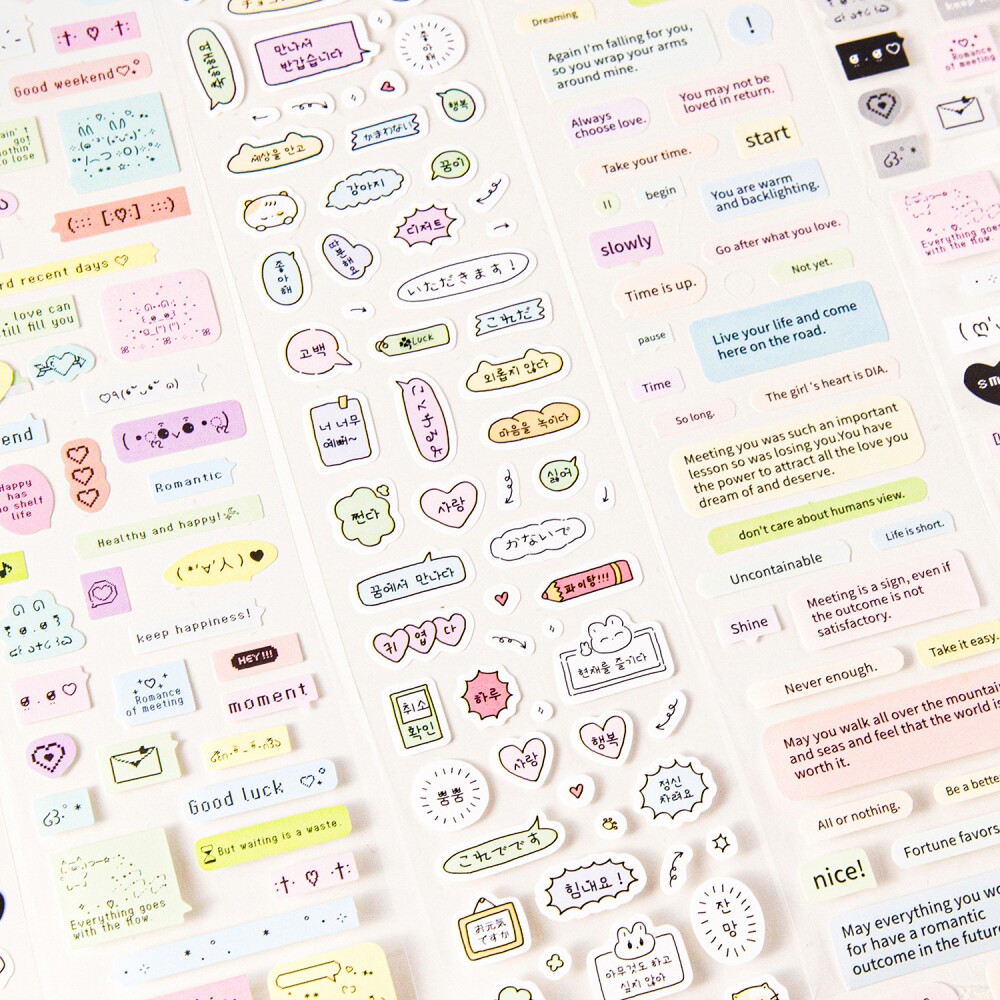 Good weekend♡
ain't
got
nothin
to lose
rd recent days ♡
love can
still fill you
end
Romantic
Happy
has
no shelf
life
Healthy and happy!
keep happiness!
HEY!!!
Romance
of meeting
moment
Good luck
But waiting is a waste.
Everything goes
with the flow.
만나서
반갑습니다
좋
아
해
행복
かまわない
세상을 안고
꿈이
강아지
디저트
따
분
해
요
좋
아
해
いただきます!
これだ
고백
Luck
외롭지 않다
너 너무
예뻐~
마음을 녹이다
싫어
쩐다
사랑
かないで
꿈에서 만나다
파이팅!!!
귀엽다
현재를 즐기다
하루
취소
확인
사랑
행복
뿜뿜
정신
차려요
これでです
힘내요!
お元気
ですか
잔
망
아무것도 하고
싶지 않아
Dreaming
!
Again I'm falling for you,
so you wrap your arms
around mine.
You may not be
loved in return.
Always
choose love.
start
Take your time.
begin
You are warm
and backlighting.
slowly
Go after what you love.
Not yet.
Time is up.
pause
Live your life and come
here on the road.
Time
The girl's heart is DIA.
So long.
Meeting you was such an important
lesson so was losing you.You have
the power to attract all the love you
dream of and deserve.
don't care about humans view.
Life is short.
Uncontainable
Meeting is a sign, even if
the outcome is not
satisfactory.
Shine
Take it easy.
Never enough.
May you walk all over the mountai
and seas and feel that the world is
worth it.
Be a bette
All or nothing.
Fortune favors
nice!
May everything you wo
for have a romantic
outcome in the future
Romance
of meeting
Everything goes
with the flow.
sm